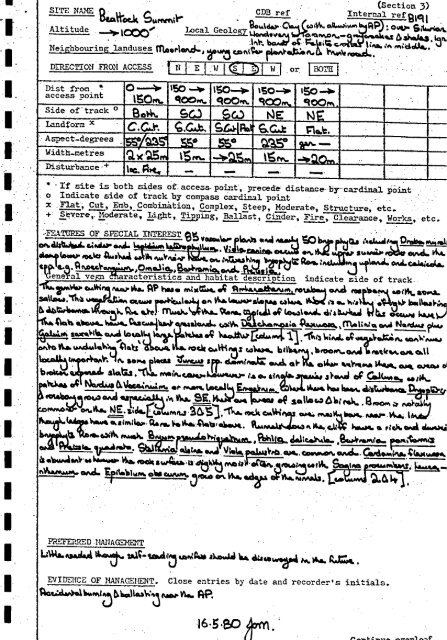 (Section 3)
SITE NAME Beattock Summit CDB ref Internal ref B191
Altitude → 1000' Local Geology Boulder Clay (with alluvium by AP): over Silurian
Llandovery to Tarannon - greywackes & shales,
int. band of Felsite crosses line in middle.
Neighbouring landuses Moorland, young conifer plantation & trunk road.
DIRECTION FROM ACCESS N E W S E W or BOTH
Dist from * access point 0 → 150m 150 → 900m. 150 → 900m. 150 → 900m. 150 → 900m.
Side of track o Both SW SW NE NE
Landform x C.Cut. S.Cut. S.Cut/Flat S.Cut Flat.
Aspect-degrees 55°/235° 55° 55° 235° —
Width-metres 2 x 25m 15m. → 25m 15m. → 20m.
Disturbance + Inc. Fire. — — — —
* If site is both sides of access point, precede distance by cardinal point
o Indicate side of track by compass cardinal point
x Flat, Cut, Emb, Combination, Complex, Steep, Moderate, Structure, etc.
+ Severe, Moderate, Light, Tipping, Ballast, Cinder, Fire, Clearance, Works, etc.
FEATURES OF SPECIAL INTEREST 85 vascular plants and nearly 50 bryophytes including Draba muralis
on disturbed cinder and Lepidium heterophyllum. Viola canina occurs on the upper summit rocks and the
damp lower rocks flushed with nutrients have an interesting bryophyte flora including upland and calcicole
spp e.g. Anoectangium, Oncalia, Bartramia and Preissia.
General vegn characteristics and habitat description indicate side of track
The gentler cutting near the AP has a mixture of Arrhenatherum, rosebay and raspberry with some
sallows. This vegetation occurs particularly on the lower slopes where there is a history of light ballasting
& disturbance through fire etc. Much of the flora typical of lowland disturbed sites occurs here.
The flats above have Resicaflant grassland with Deschampsia flexuosa, Molinia and Nardus plus
Galium saxatile and locally large patches of heather [column 1]. This kind of vegetation continues
onto the undulating flats above the rock cuttings where bilberry, broom and bracken are all
locally important. In some places Juncus spp. dominate and at the other extreme there are areas of
broken exposed slates. The main cover however is a single species stand of Calluna with
patches of Nardus & Vaccinium or more locally Empetrum. Where there has been disturbance Digitalis
& rosebay grow and especially in the SE, there are areas of sallow & birch. Broom is notably
common on the NE side [columns 3 & 5]. The rock cuttings are mostly bare near the line
though ledges have a similar flora to the flats above. Runnels down the cliff have a rich and damp
bryophyte flora with much Bryum pseudotriquetrum, Pohlia delicatula, Bartramia pomiformis
and Preissia quadrata. Stellaria alsine and Viola palustris are common and Cardamine flexuosa
is abundant wherever the rock surface is slightly moist often growing with Sagina procumbens, Leucanthemum
and Epilobium obscurum grow on the edges of the runnels. [column 2 & 4].
PREFERRED MANAGEMENT
Little needed though self-seeding conifers should be discouraged in the future.
EVIDENCE OF MANAGEMENT. Close entries by date and recorder's initials.
Accidental burning & ballasting near the AP.
16.5.80
Continue overleaf